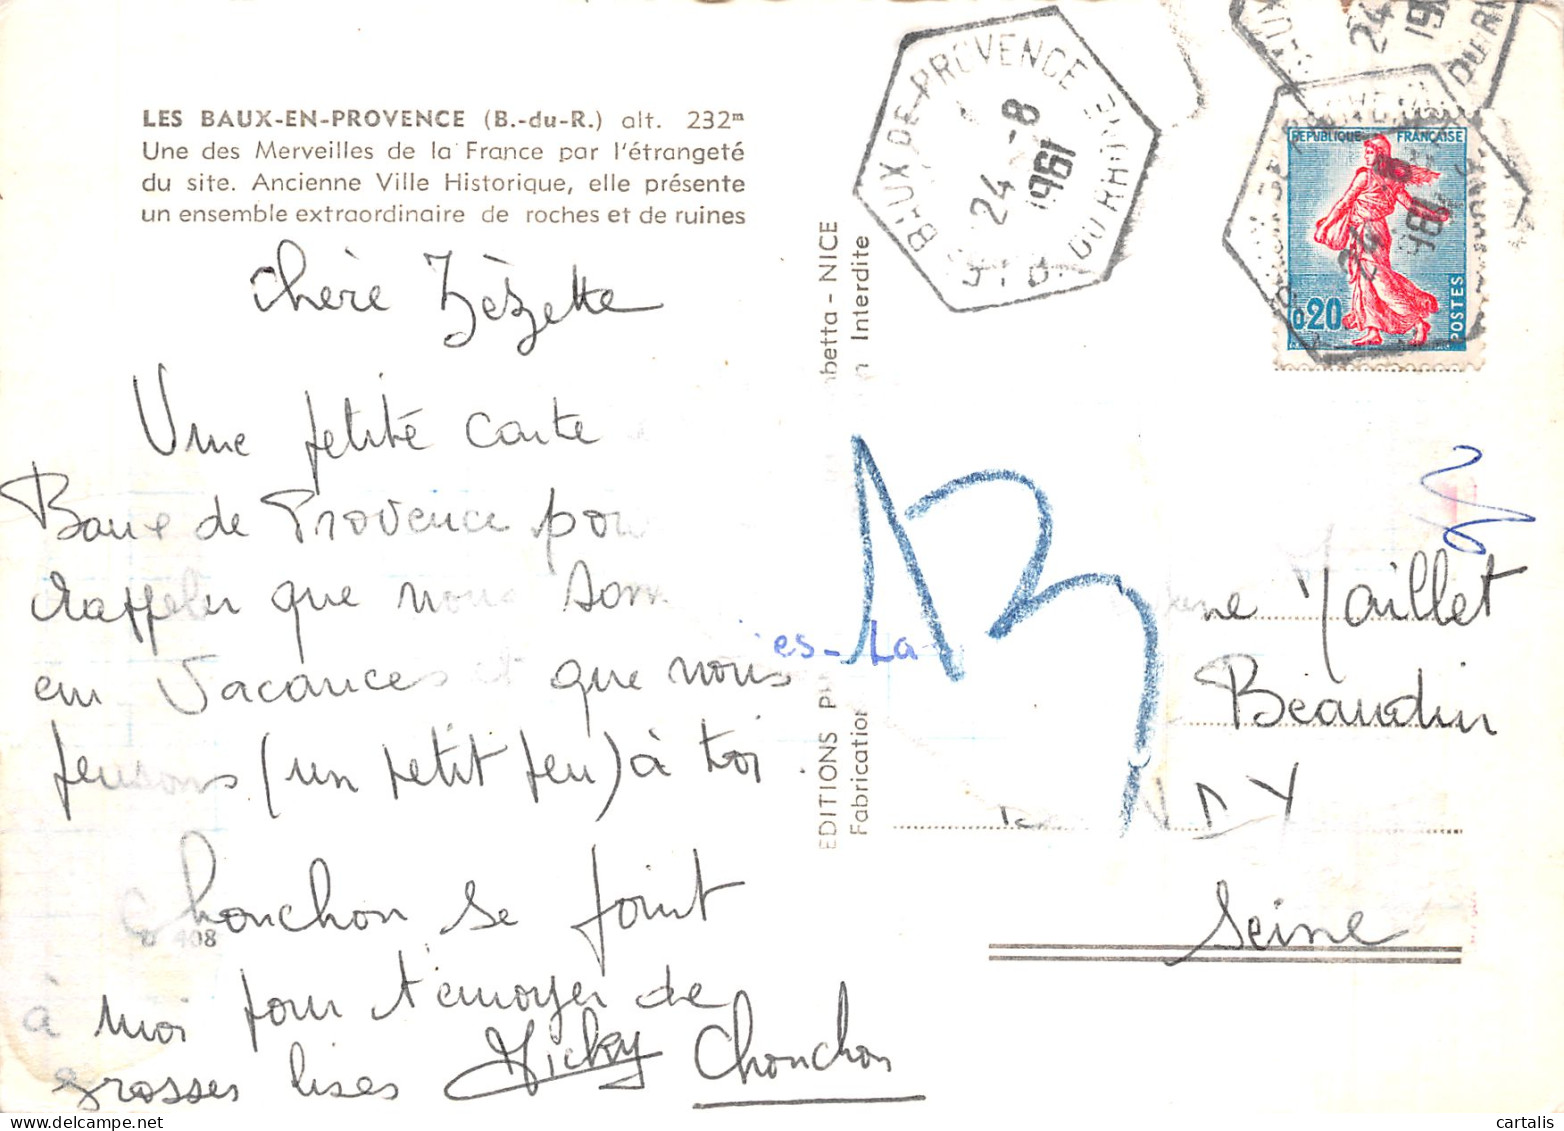 LES BAUX-EN-PROVENCE (B.-du-R.) alt. 232m
Une des Merveilles de la France par l'étrangeté
du site. Ancienne Ville Historique, elle présente
un ensemble extraordinaire de roches et de ruines
chère Zèzette
Une petite carte
Baux de Provence pour
rappeler que nous som
en Vacances et que nous
pensons (un petit peu) à toi
Chonchon se joint
à moi pour t'envoyer de
grosses bises Micky Chonchon
408
EDITIONS
betta - NICE
Fabrication Interdite
BAUX-DE-PROVENCE
24 -8
1961
B. DU RHONE
REPUBLIQUE FRANÇAISE
0,20
POSTES
24 8
1961
24
es-La
Maillet
Beaudin
Seine
cartalis